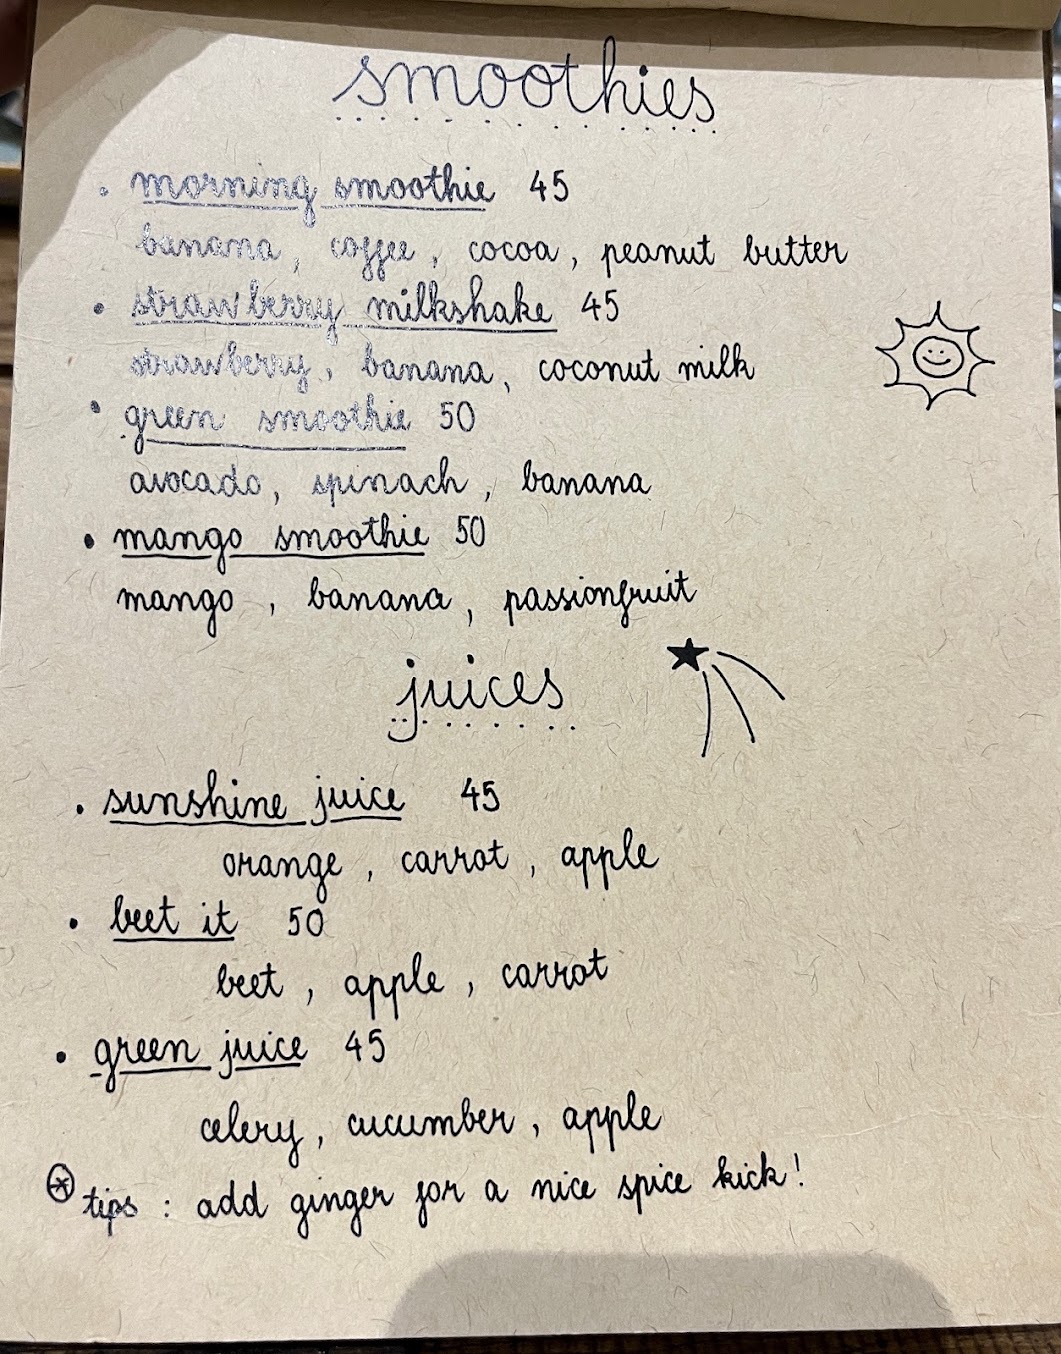 smoothies
• morning smoothie 45
banana, coffee, cocoa, peanut butter
• strawberry milkshake 45
strawberry, banana, coconut milk
• green smoothie 50
avocado, spinach, banana
• mango smoothie 50
mango, banana, passionfruit
juices
• sunshine juice 45
orange, carrot, apple
• beet it 50
beet, apple, carrot
• green juice 45
celery, cucumber, apple
⊛ tips : add ginger for a nice spice kick!